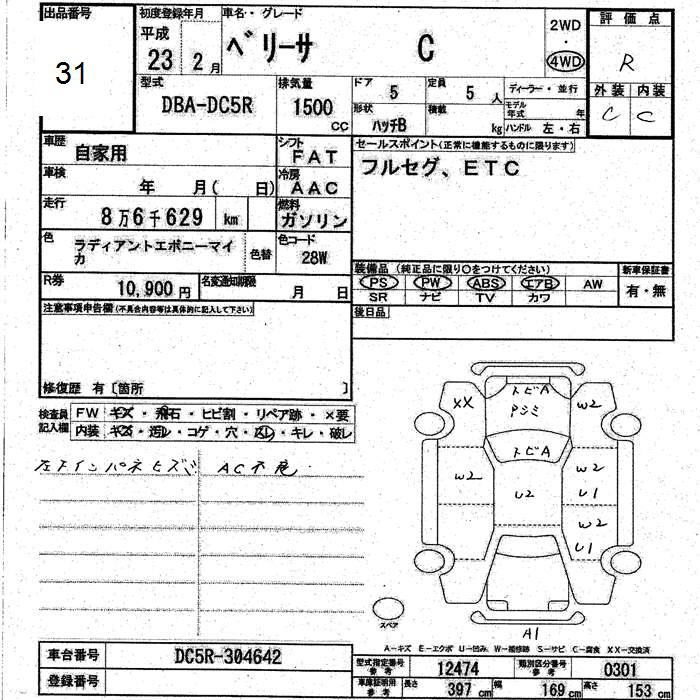 出品番号
31
初度登録年月
平成
23 2 月
車名・・グレード
ベリーサ C
2WD
・
4WD
評価点
R
外装 内装
C C
型式
DBA-DC5R
排気量
1500
CC
ドア
5
定員
5 人
形状
ハッチB
積載
kg
ディーラー・並行
モデル年式 年
ハンドル 左・右
車歴
自家用
シフト
FAT
車検
年 月( 日)
冷房
AAC
走行
8万6千629 km
燃料
ガソリン
色
ラディアントエボニーマイカ
色替
色コード
28W
R券
10,900 円
名変通知期限
月 日
セールスポイント(正常に機能するものに限ります)
フルセグ、ETC
装備品(純正品に限り○をつけてください)
PS PW ABS エアB AW
SR ナビ TV カワ
新車保証書
有・無
後日品
注意事項申告欄(不具合内容等は具体的に記入して下さい)
修復歴 有〔箇所 〕
検査員記入欄
FW キズ・飛石・ヒビ割・リペア跡・×要
内装 キズ・汚レ・コゲ・穴・・キレ・破レ
AC不良
トビA
XX
W2
トビA
W2
U2
W2
U1
W2
U1
A1
スペア
A-キズ E-エクボ U-凹み W-補修跡 S-サビ C-腐食 XX-交換済
車台番号
DC5R-304642
登録番号
型式指定番号
参考
12474
類別区分番号
参考
0301
車庫証明用
参考
長さ 397 cm 幅 169 cm 高さ 153 cm